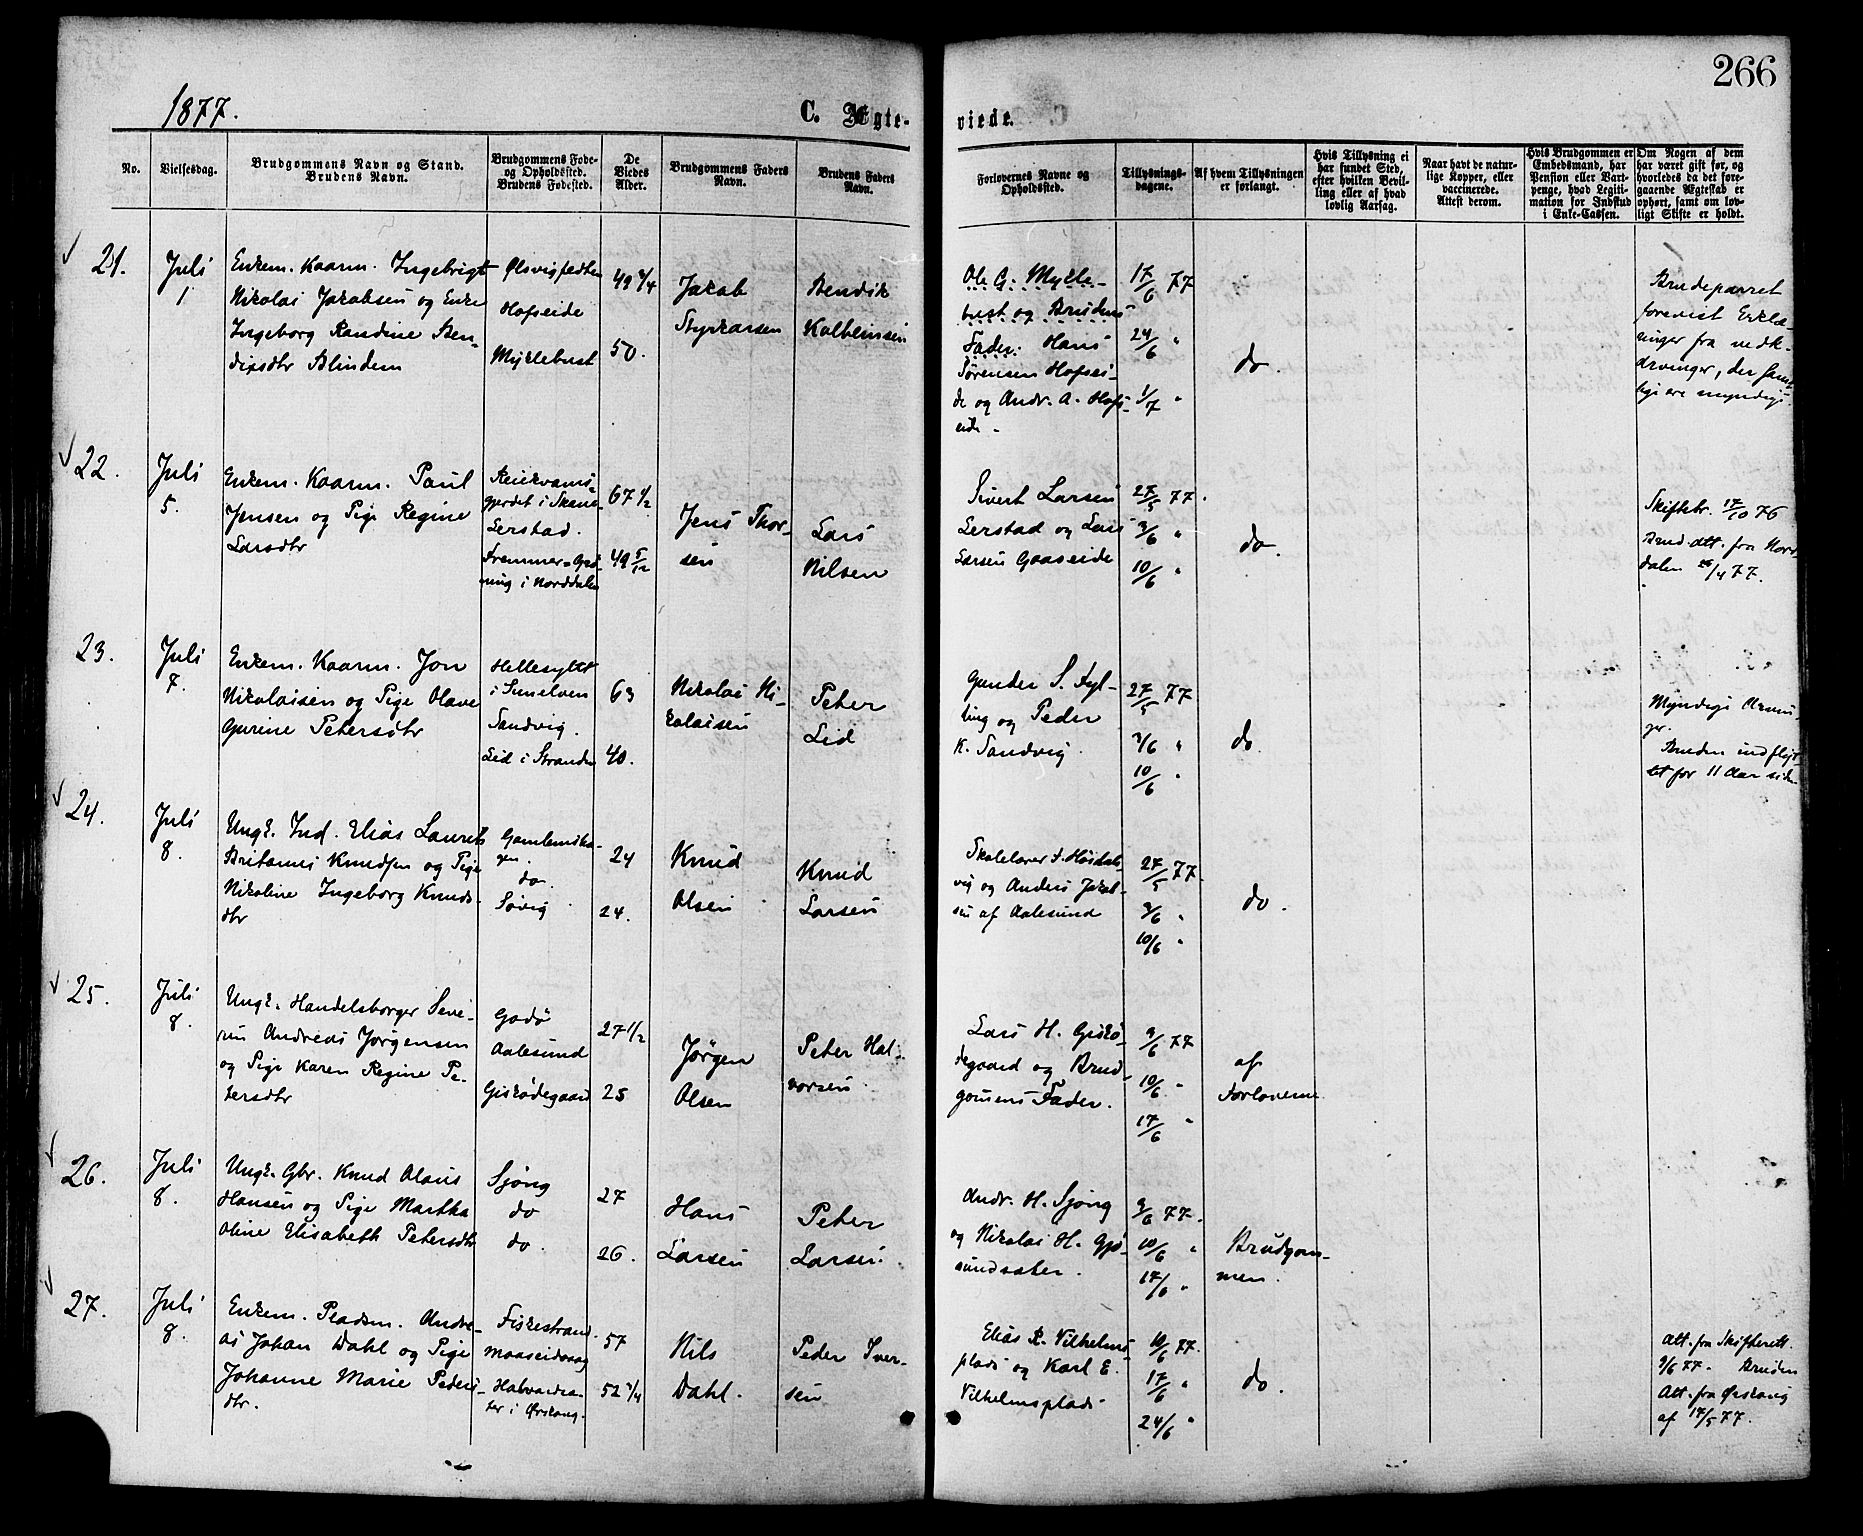 266
1877.
C. Ægte-
viede.
No.
Vielsesdag.
Brudgommens Navn og Stand.
Brudens Navn.
Brudgommens Føde-
og Opholdssted.
Brudens Fødested.
De
Viedes
Alder.
Brudgommens Faders
Navn.
Brudens Faders
Navn.
Forlovernes Navne og
Opholdssted.
Tillysnings-
dagene.
Af hvem Tillysningen
er forlangt.
Hvis Tillysning ei
har fundet Sted,
efter hvilken Bevil-
ling eller af hvad
lovlig Aarsag.
Naar havt de natur-
lige Kopper, eller
vaccinerede.
Attest derom.
Hvis Brudgommen er
Embedsmand, har
Pension eller Vart-
penge, hvad Legiti-
mation for Indskud
i Enke-Cassen.
Om Nogen af dem
har været gift før, og
hvorledes da det fore-
gaaende Ægteskab er
ophørt, samt om lov-
ligt Skifte er holdt.
21.
Juli
1
Enkem. Kaarm. Ingebrigt
Nikolai Jakobsen og Enke
Ingeborg Randine Ben-
dixsdtr Blindem
Hofseide
Myklebust
49 3/4
50.
Jakob
Styrkarsen
Bendik
Kolbeinsen
Ole G. Mykle-
bust og Brudens
Fader: Hans
Sørensen Hofsei-
de og Andr. A. Hofs-
eide -
17/6 77
24/6 "
1/7 "
do.
Brudeparret
forevist Erklæ-
ringer fra
arvinger, der sam-
lige ere myndige.
22.
Juli
5.
Enkem. Kaarm. Paul
Jensen og Pige Regine
Larsdtr
gjerdet i Skans
Lerstad.
Fremmer-Grø-
ning i Norddalen
67 1/2
49 5/12
Jens Thor-
sen
Lars
Nilsen
Sivert Larsen
Lerstad og Lars
Larsen Gaaseide
27/5 77.
3/6 "
10/6 "
do.
Skiftebr. 17/10 76
Brud. att. fra Nord-
dalen 26/4 77.
23.
Juli
7.
Enkem. Kaarm. Jon
Nikolaisen og Pige Olave
Gurine Petersdtr
Hellesylt
i Sunelven
Sandvig.
Lid i Stranden
63
40.
Nikolai Ni-
kolaisen
Peter
Lid
Gunder S. Fyl-
ling og Peder
K. Sandvig.
27/5 77
3/6 "
10/6 "
do.
Myndige Arvin-
ger.
Bruden indflyt-
tet for 11 Aar siden
24.
Juli
8.
Ungk. Ind. Elias Laurits
Britanus Knudsen og Pige
Nikoline Ingeborg Knuds-
dtr
Gamlemsha-
gen.
do.
Søvig
24
24.
Knud
Olsen
Knud
Larsen
Skolelærer J. Høidals-
vig og Anders Jakob-
sen af Aalesund
27/5 77.
3/6 "
10/6 "
do.
25.
Juli
8.
Ungk. Handelsborger Seve-
rin Andreas Jørgensen
og Pige Karen Regine Pe-
tersdtr
Godø
Aalesund
Giskødegaard
27 1/2
25
Jørgen
Olsen
Peter Hal-
vorsen
Lars H. Giskø-
degaard og Brud-
gomens Fader.
3/6 77
10/6 "
17/6 "
af
Forloverne
26.
Juli
8.
Ungk. Gbr. Knud Olaus
Hansen og Pige Martha
Oline Elisabeth Petersdtr
Sjøng
do
do.
27
26.
Hans
Larsen
Peter
Larsen.
Andr. H. Sjøng
og Nikolai H. Gjø-
sundsæter.
3/6 77.
10/6 "
17/6 "
Brudgom-
men.
27.
Juli
8.
Enkem. Pladsm. Andre-
as Johan Dahl og Pige
Johanne Marie Peders-
dtr.
Fiskestrand.
Maaseidvaag
Halvardsæ-
ter i Ørskoug.
57
52 3/4
Nils
Dahl.
Peder Iver-
sen
Elias R. Vilhelms-
plads og Karl E.
Vilhelmsplads
10/6 77.
17/6 "
24/6 "
do.
Att. fra Skifterett.
9/6 77. Bruden
Att. fra Ørskoug
af 17/5 77.